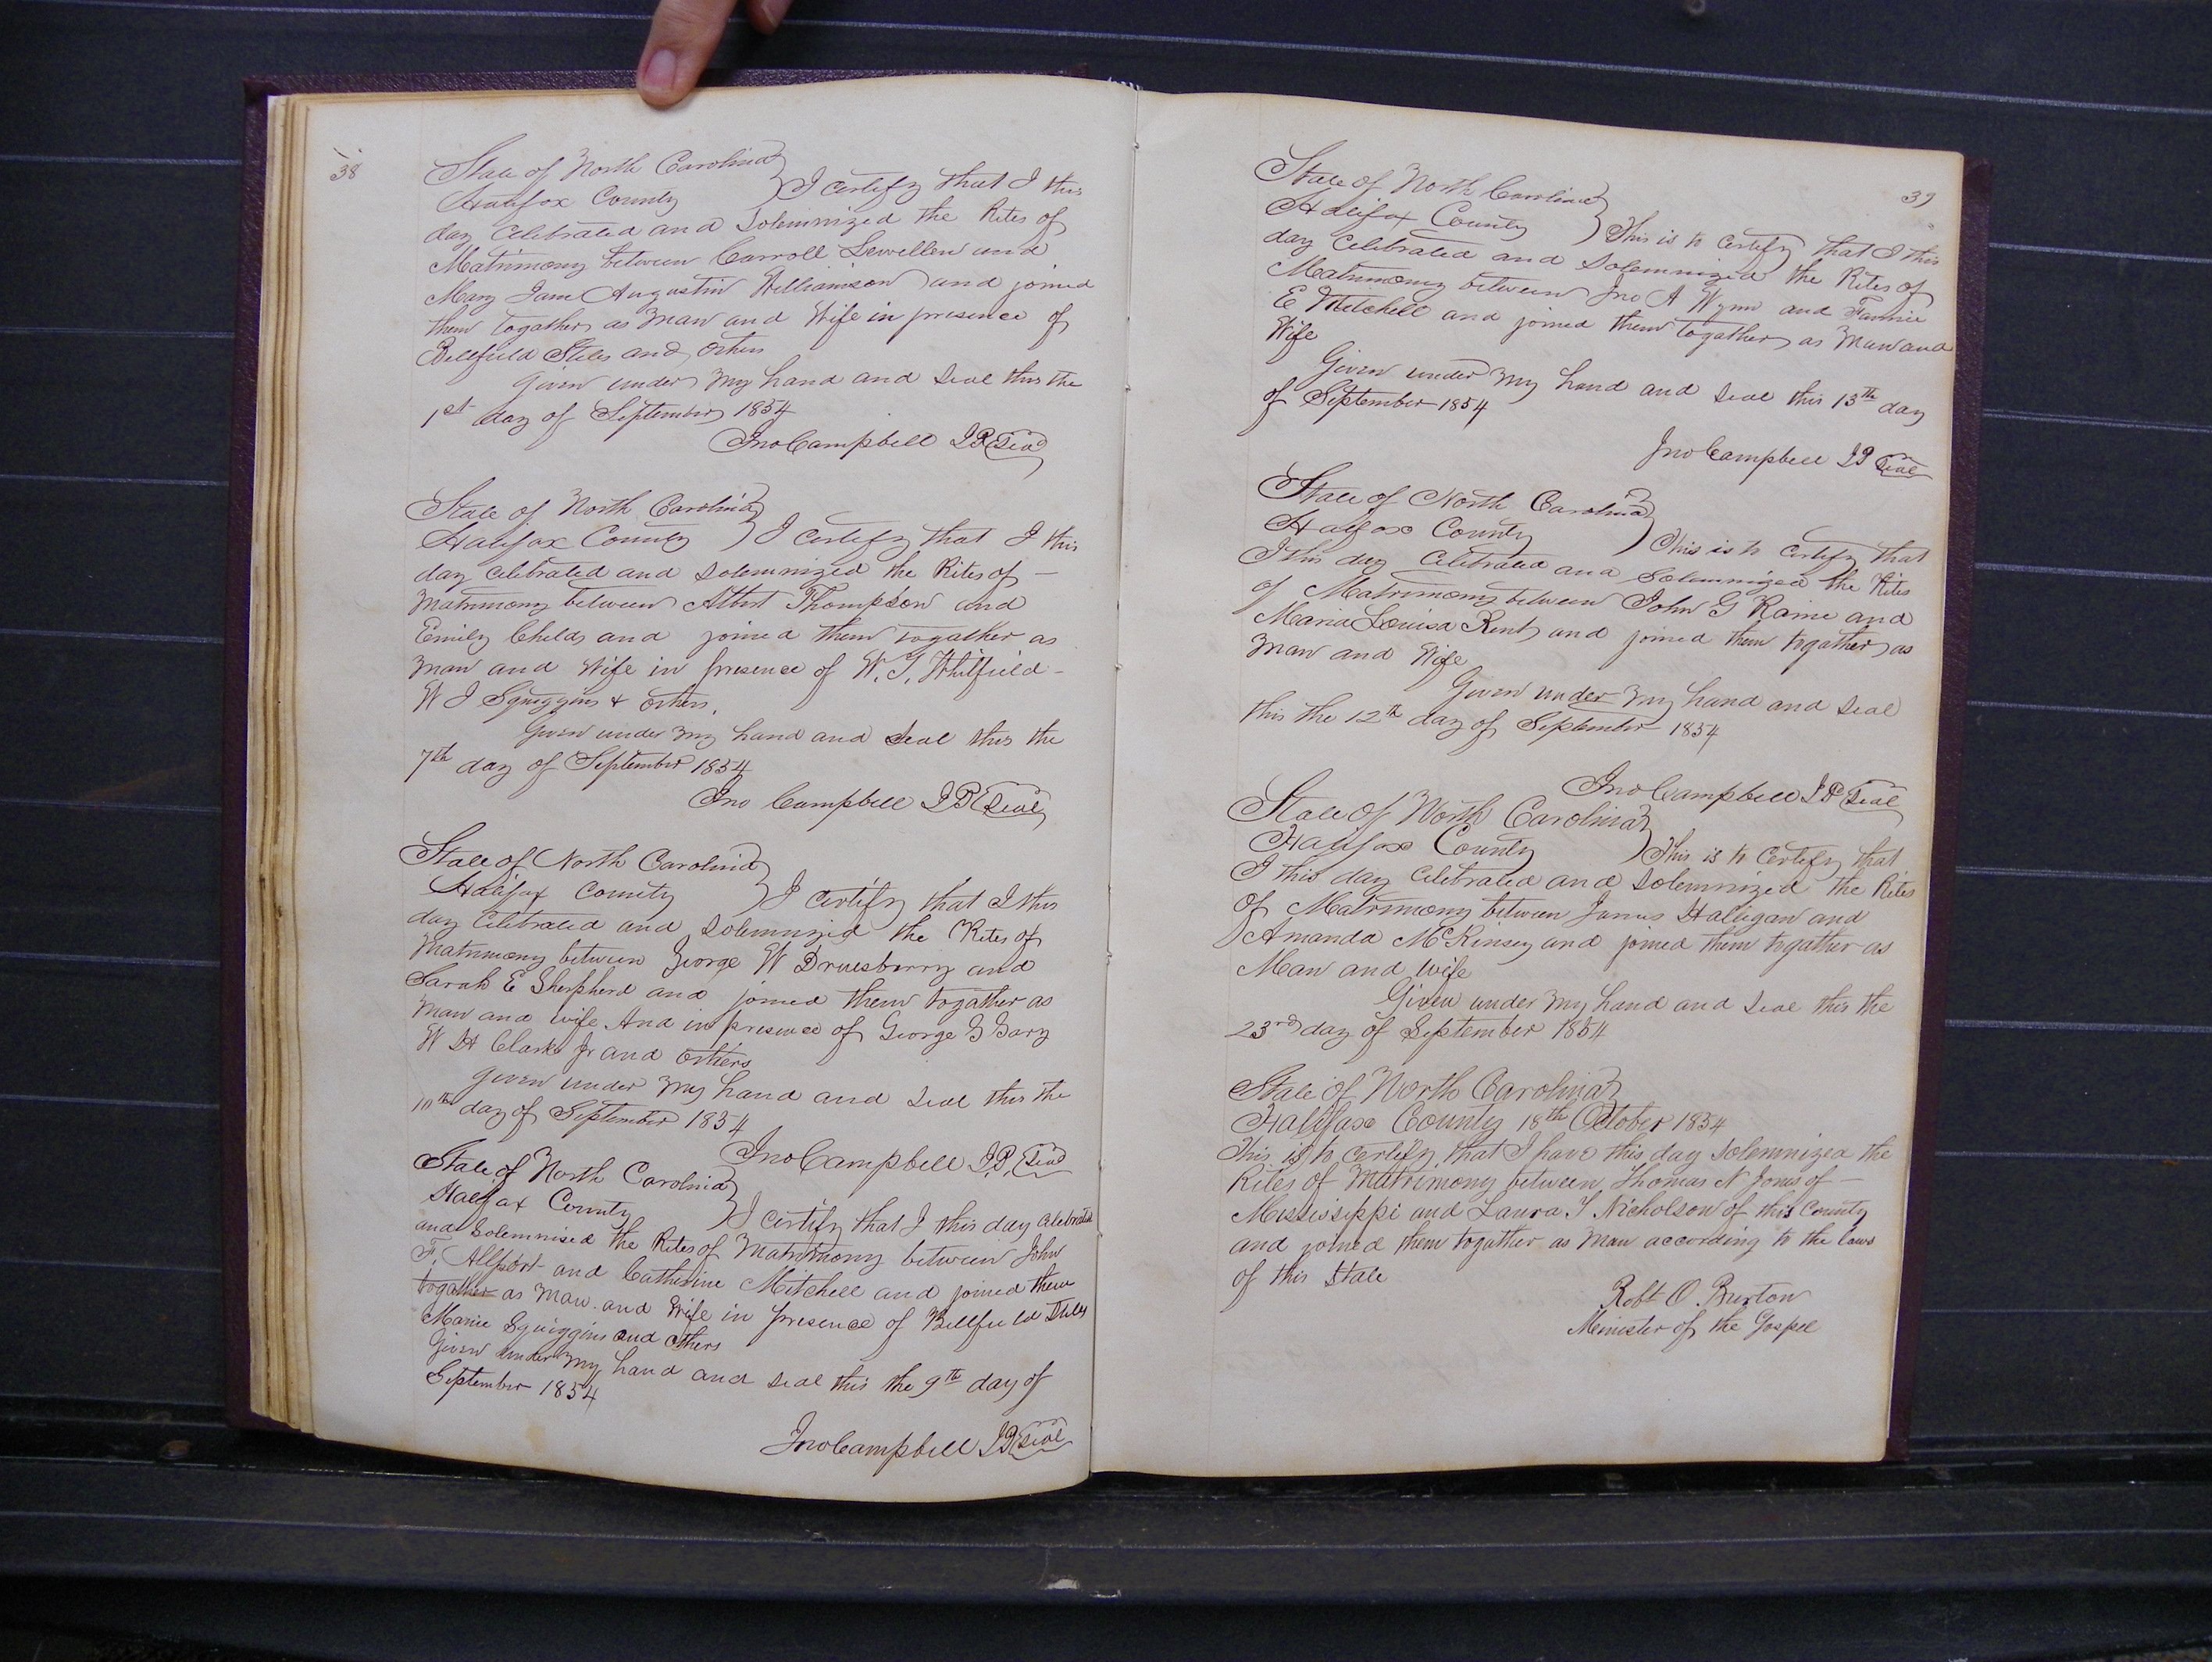 38
State of North Carolina
Halifax County } I certify that I this
day Celebrated and Solemnized the Rites of
Matrimony between Carroll Lewellen and
Mary Jane Augustin Williamson and joined
them togather as Man and Wife in presence of
Bellfield Stiles and others
Given under my hand and Seal this the
1st day of September 1854
Jno Campbell J P Seal
State of North Carolina
Halifax County } I certify that I this
day celebrated and Solemnized the Rites of —
Matrimony between Albert Thompson and
Emily Childs and joined them togather as
Man and Wife in presence of W. T. Whitfield -
W J Squiggins & others.
Given under my hand and Seal this the
7th day of September 1854
Jno Campbell J P Seal
State of North Carolina
Halifax County } I certify that I this
day Celebrated and Solemnized the Rites of
Matrimony between George W Drewsberry and
Sarah E Shepherd and joined them togather as
Man and wife And in presence of George G Gary
W H Clark Jr and others
Given under my hand and Seal this the
10th day of September 1854
Jno Campbell J.P. Seal
State of North Carolina
Halifax County } I certify that I this day celebrated
and Solemnised the Rites of Matrimony between John
F. Allport and Catherine Mitchell and joined them
togather as Man and Wife in presence of Bellfield Stiles
Squiggins and others
Given under my hand and Seal this the 9th day of
September 1854
Jno Campbell J P Seal
39
State of North Carolina
Halifax County } This is to certify that I this
day Celebrated and Solemnized the Rites of
Matrimony between Jno A Wynn and Fannie
E Mitchell and joined them togather as Man and
Wife
Given under my hand and Seal this 13th day
of September 1854
Jno Campbell J P Seal
State of North Carolina
Halifax County } This is to certify that
I this day Celebrated and Solemnized the Rites
of Matrimony between John G Raine and
Maria Louisa Kent and joined them togather as
Man and Wife
Given under my hand and Seal
this the 12th day of September 1854
Jno Campbell J P Seal
State of North Carolina
Halifax County } This is to Certify that
I this day Celebrated and Solemnized the Rites
of Matrimony between James Halligan and
Amanda McKinsey and joined them togather as
Man and wife
Given under my hand and Seal this the
23rd day of September 1854
State of North Carolina
Halifax County 18th October 1854
This is to certify that I have this day Solemnized the
Rites of Matrimony between Thomas N Jones of —
Mississippi and Laura T Nicholson of this County
and joined them togather as Man according to the laws
of this State
Robt O. Burton
Minister of the Gospel